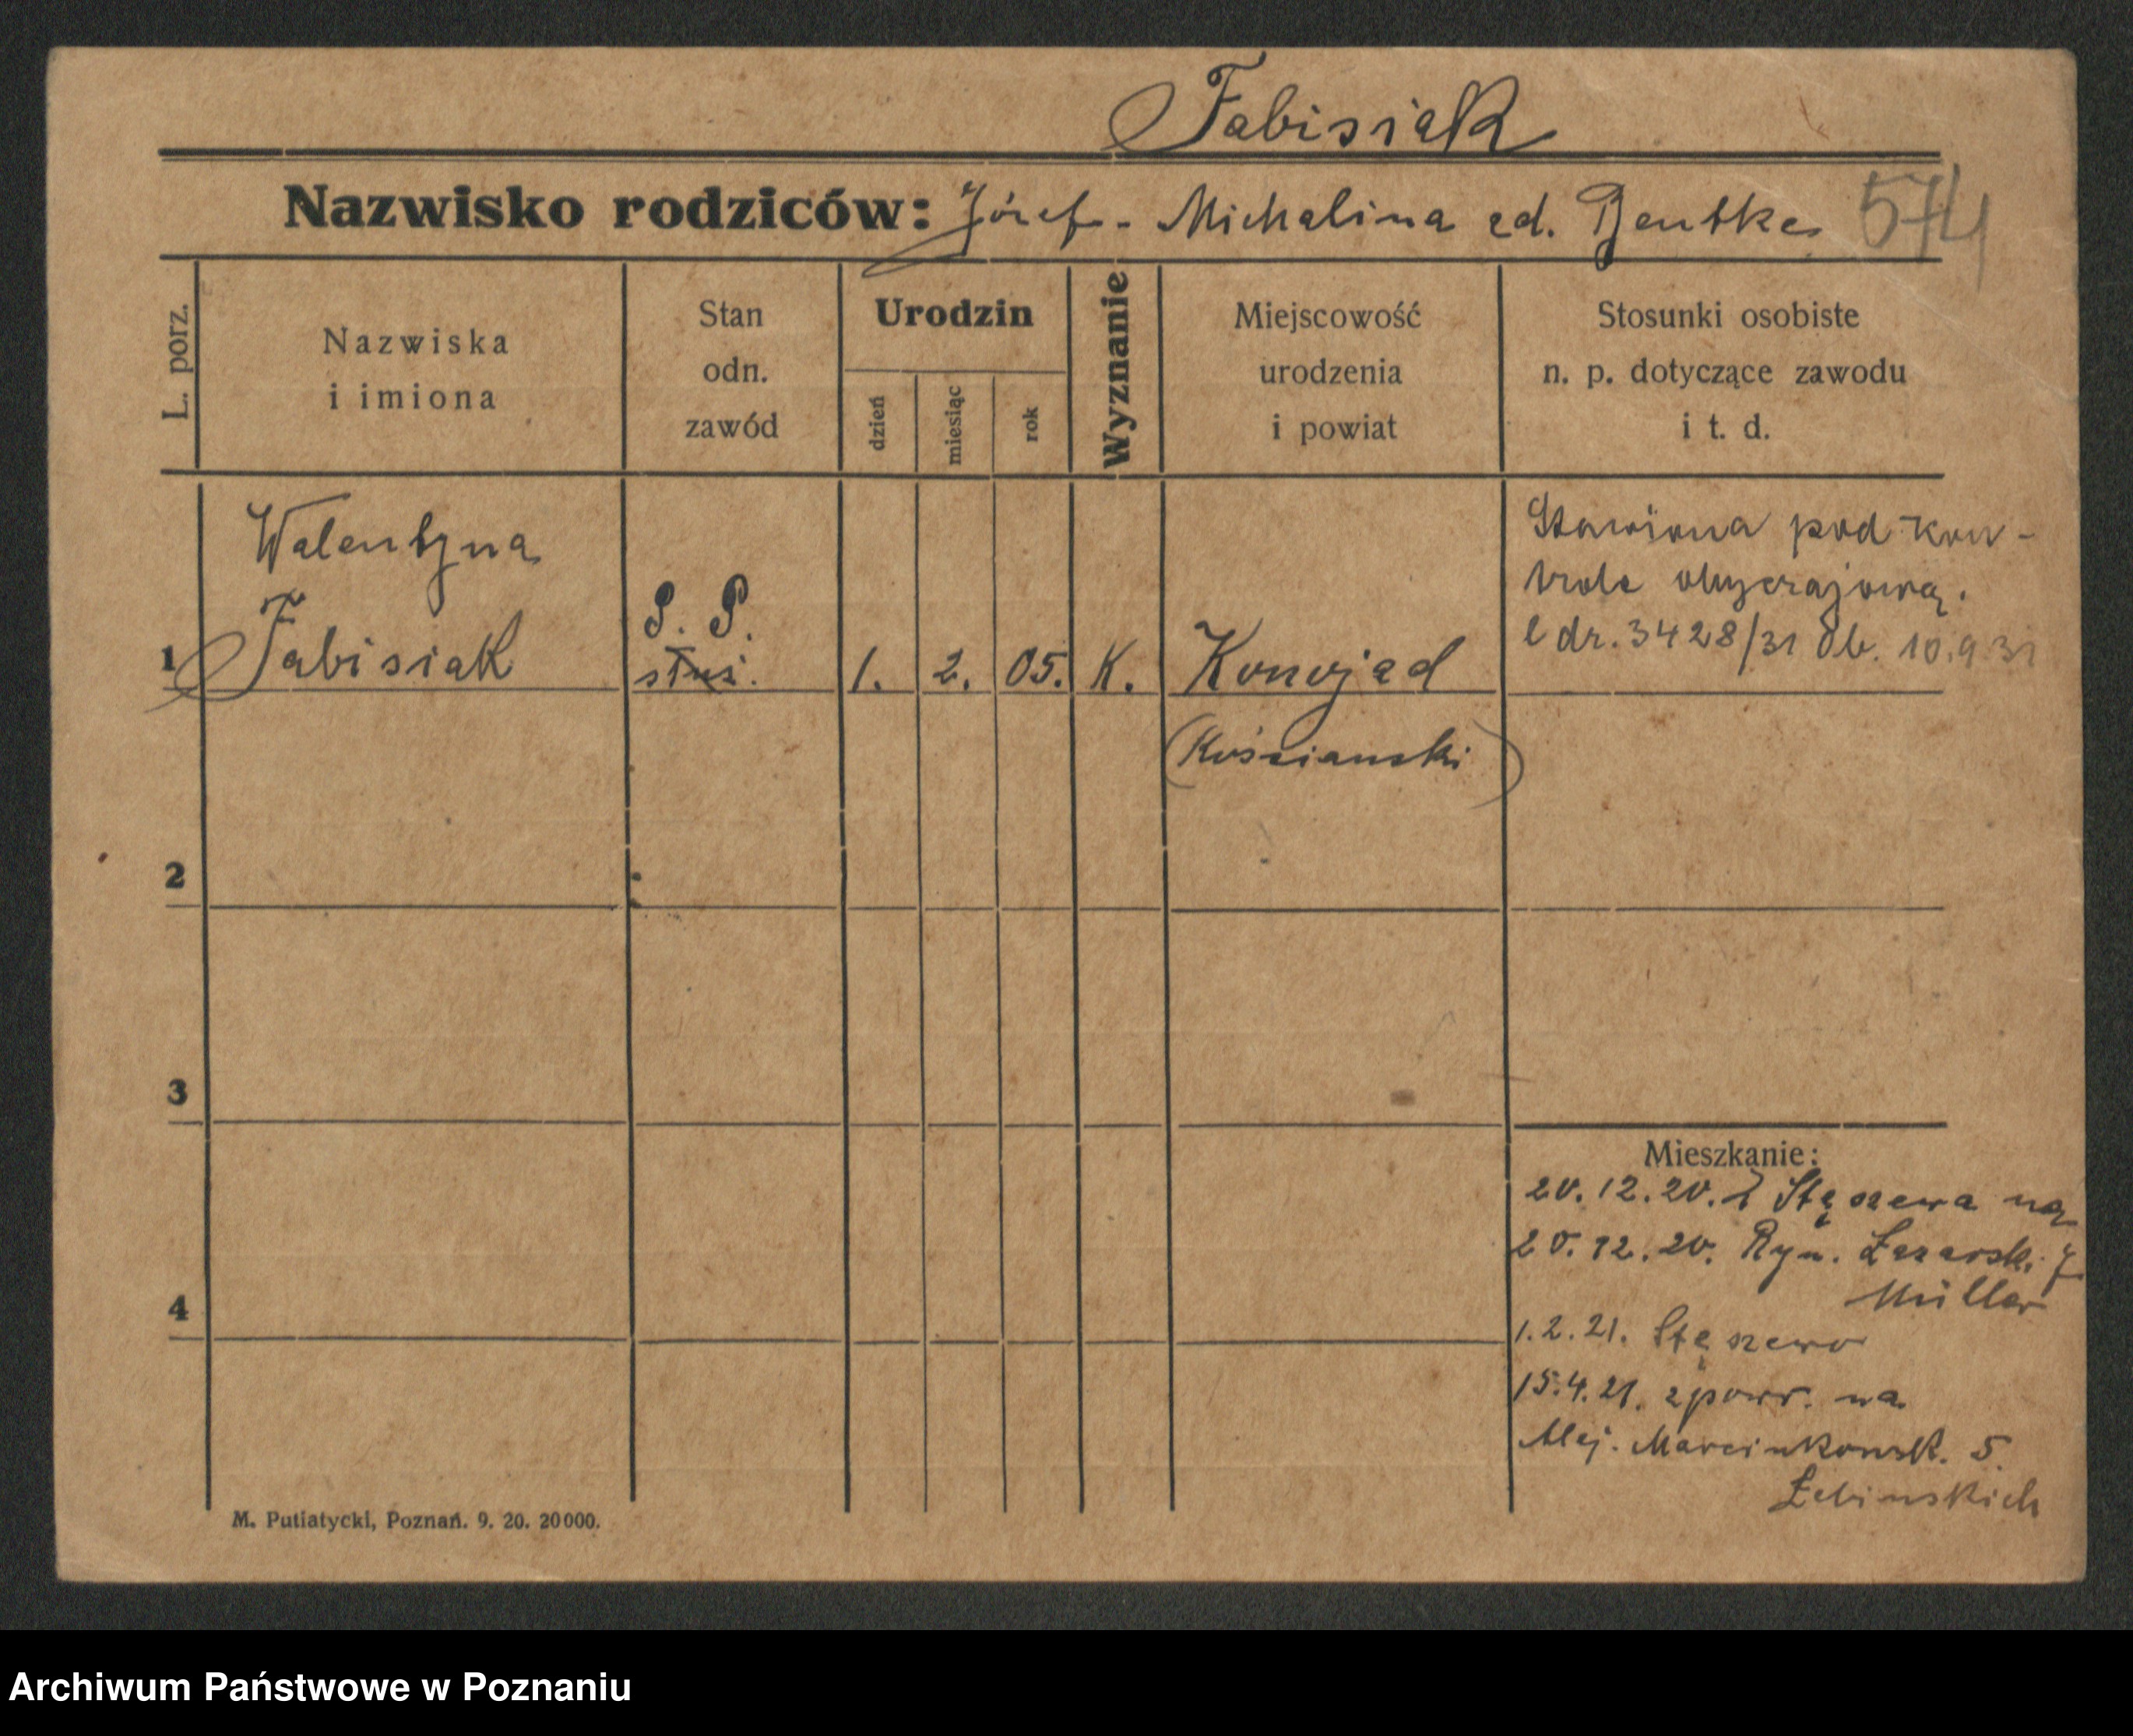 Fabisiak
Nazwisko rodziców: Józef - Michalina zd. Bentke 574
L. porz.
Nazwiska
i imiona
Stan
odn.
zawód
Urodzin
dzień
miesiąc
rok
Wyznanie
Miejscowość
urodzenia
i powiat
Stosunki osobiste
n. p. dotyczące zawodu
i t. d.
1
Walentyna
Fabisiak
S. S.
służ.
1. 2. 05. K.
Konojad
(Kościański)
Stawiona pod kon-
trolę obyczajową.
l dr. 3428/31 Ob. 10.9 31
2
3
4
Mieszkanie:
20. 12. 20. z Stęszewa na
20. 12. 20. Ryn. Łazarski 7
Müller
1. 2. 21. Stęszewo
15. 4. 21. zpowr. na
Alej. Marcinkowsk. 5.
Żebinskich
M. Putiatycki, Poznań. 9. 20. 20000.
Archiwum Państwowe w Poznaniu